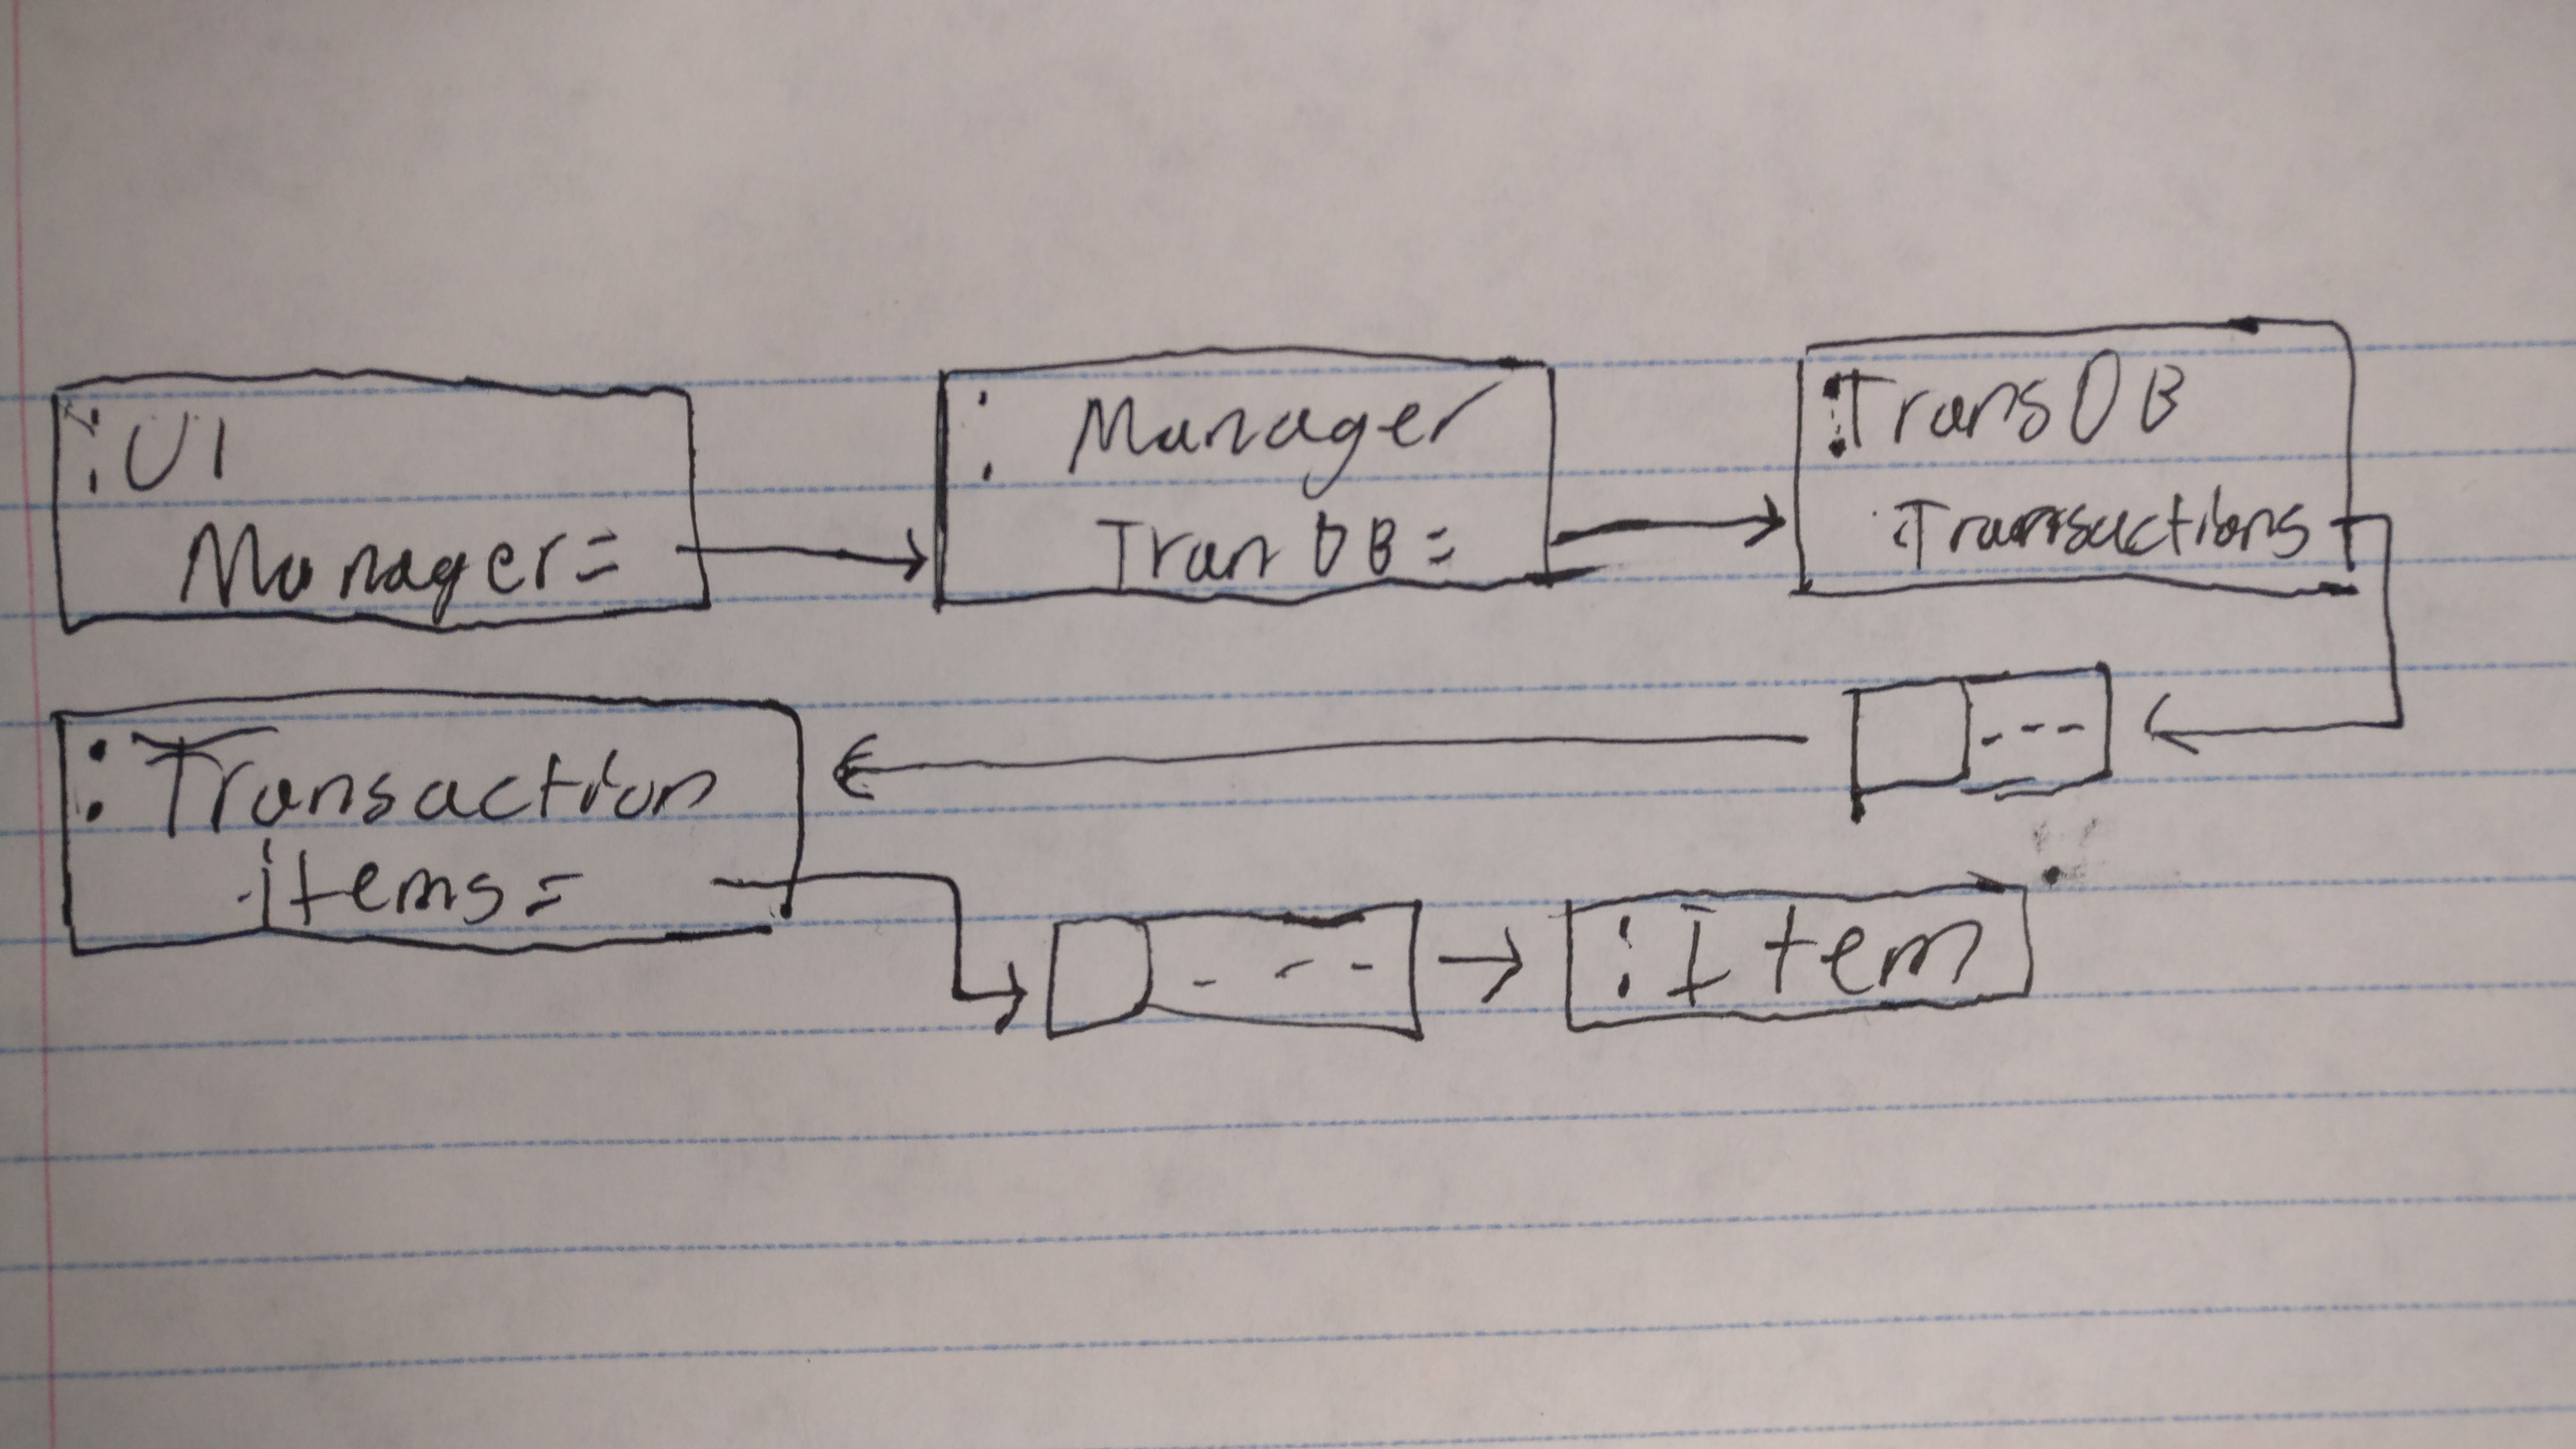 :UI
Manager=
: Manager
Tran DB=
:TransDB
Transactions
:Transaction
items=
:Item